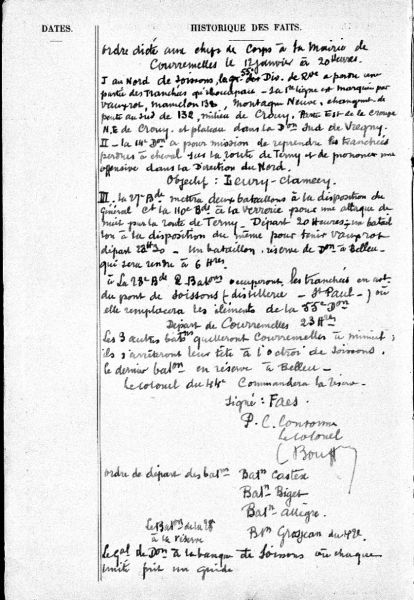 DATES. HISTORIQUE DES FAITS.
ordre dicté aux chefs de Corps à la Mairie de
Courmelles le 12 janvier à 20 heures.
I au Nord de Soissons, la 55e Dis. de Rve a perdu une
partie des tranchées qu'elle occupait - La 1re ligne est marquée par
Vauxrot, mamelon 132, Montagne Neuve, changemt de
pente au sud de 132, milieu de Crouy. Partie Est de la croupe
N.E de Crouy et plateau dans la Don Sud de Vregny.
II - La 14e Don a pour mission de reprendre les tranchées
perdues à cheval sur la route de Terny et de prononcer une
offensive dans la Direction du Nord.
Objectif : Leury-Clamecy.
III. La 27e Bde mettra deux bataillons à la disposition du
Général Ct la 110e Bde à la Verrerie pour une attaque de
nuit par la route de Terny - Départ 20 heures, un batail
lon à la disposition du même pour tenir Vauxrot
départ 22h30 - Un bataillon, réserve de Don à Belleu.
qui sera rendu à 6 Hres
à la 28e Bde 2 Batons occuperont les tranchées en est
du pont de Soissons (distillerie - St Paul -) où
elle remplacera les éléments de la 55e Don
Départ de Courmelles 23 Hres
Les 3 autres batons quitteront Courmelles à minuit;
ils s'arrêteront leur tête à l'octroi de Soissons.
le dernier baton en réserve à Belleu -
Le colonel du 44e Commandera la réserve.
Signé : Faes.
P. C. Conforme
Le colonel
Bouff
ordre de départ des batons Baton Castex
Baton Biget
Baton Allègre.
Le Baton de la 28e Bon Grosjean du 42e
à la réserve
Le Gal de Don à la banque de Soissons où chaque
unité prit un guide